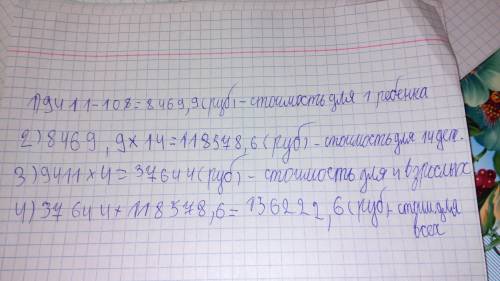 1) 9411-10%=8469,9(руб)-стоимость для 1 ребенка
2) 8469,9×14=118578,6(руб)-стоимость для 14 дет.
3) 9411×4=37644(руб)-стоимость для 4 взрослых
4) 37644+118578,6=136222,6(руб)-стоим для
всех